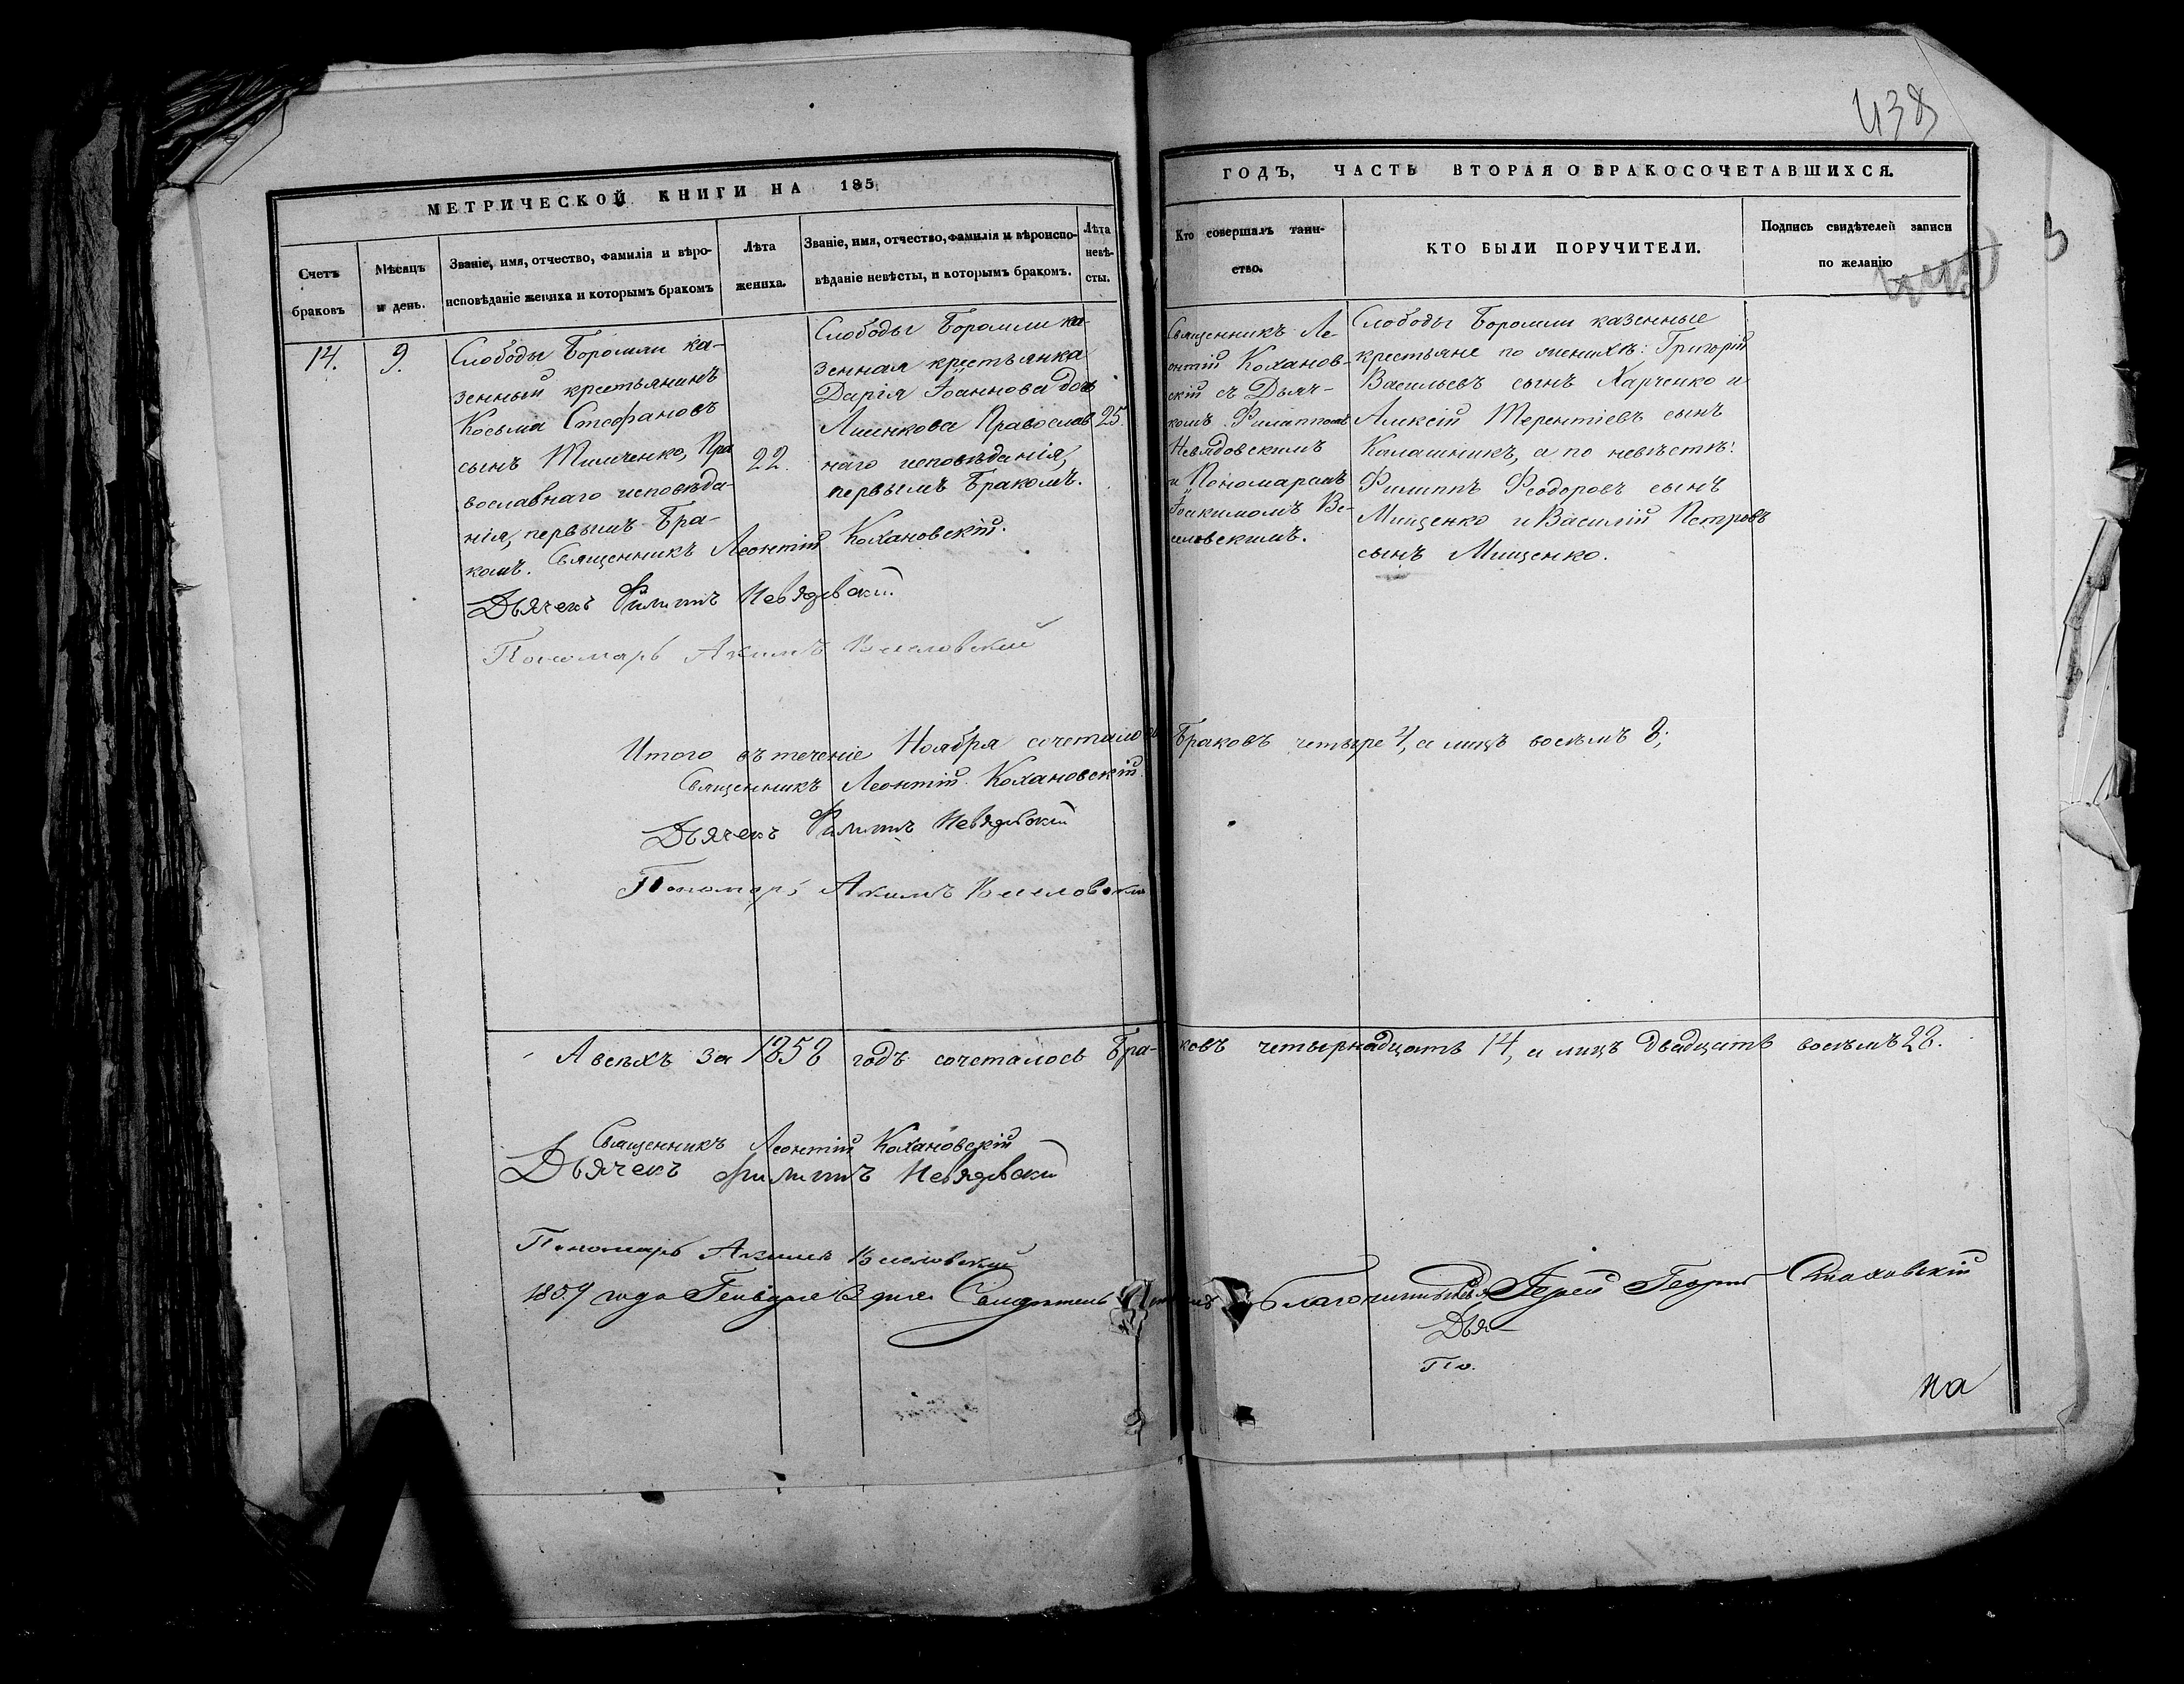 438
МЕТРИЧЕСКОЙ КНИГИ НА 185
Счетъ браковъ
Мѣсяцъ и день.
Званіе, имя, отчество, фамилія и вѣро-
исповѣданіе жениха и которымъ бракомъ
Лѣта жениха.
Званіе, имя, отчество, фамилія и вѣроиспо-
вѣданіе невѣсты, и которымъ бракомъ.
Лѣта невѣ-
сты.
14.
9.
Слободы Боромли ка-
зенный крестьянинъ
Косьма Стефановъ
сынъ Тимченко, Пра
вославнаго исповѣда-
нія, первымъ Бра-
комъ.
22.
Слободы Боромли ка-
зенная крестьянка
Дарія Іоаннова дочь
Православ
наго исповѣданія,
первымъ Бракомъ.
25.
Священникъ Леонтій Кохановскій.
Дьячекъ Филиппъ Невядовскій
Пономарь Акимъ Веселовскій
Итого въ теченіе Ноября сочеталось
Священникъ Леонтій Кохановскій
Дьячекъ Филиппъ Невядовскій
Пономарь Акимъ Веселовскій
А всѣхъ за 1858 годъ сочеталось Бра-
Священникъ Леонтій Кохановскій
Дьячекъ Филиппъ Невядовскій
Пономарь Акимъ Веселовскій
1859 года Генваря дня
ГОДЪ, ЧАСТЬ ВТОРАЯ О БРАКОСОЧЕТАВШИХСЯ.
Кто совершалъ таин-
ство.
КТО БЫЛИ ПОРУЧИТЕЛИ.
Подпись свидѣтелей записи
по желанію
Священникъ Ле-
онтій Коханов-
скій съ Дьяч-
комъ Филиппомъ
Невядовскимъ
и Пономаремъ
Іоакимомъ Ве-
селовскимъ.
Слободы Боромли казенные
крестьяне по женихѣ: Григорій
Васильевъ сынъ Харченко и
Алексій Терентіевъ сынъ
Калашникъ, а по невѣстѣ:
Филиппъ Феодоровъ сынъ
Мищенко и Василій Петровъ
сынъ Мищенко.
Браковъ четыре 4, а лицъ восемъ 8;
ковъ четырнадцать 14, а лицъ двадцать восемъ 28.
Благочинный Іерей Стаховскій
Дья-
По.
на